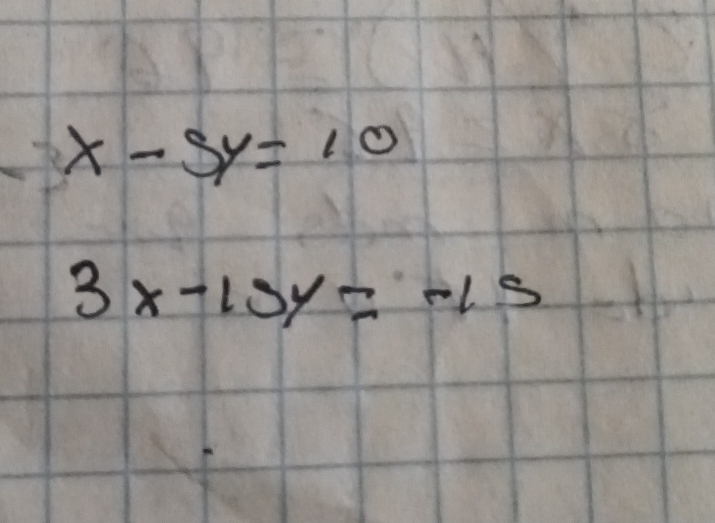 x - 5y = 10
3x - 15y = -15